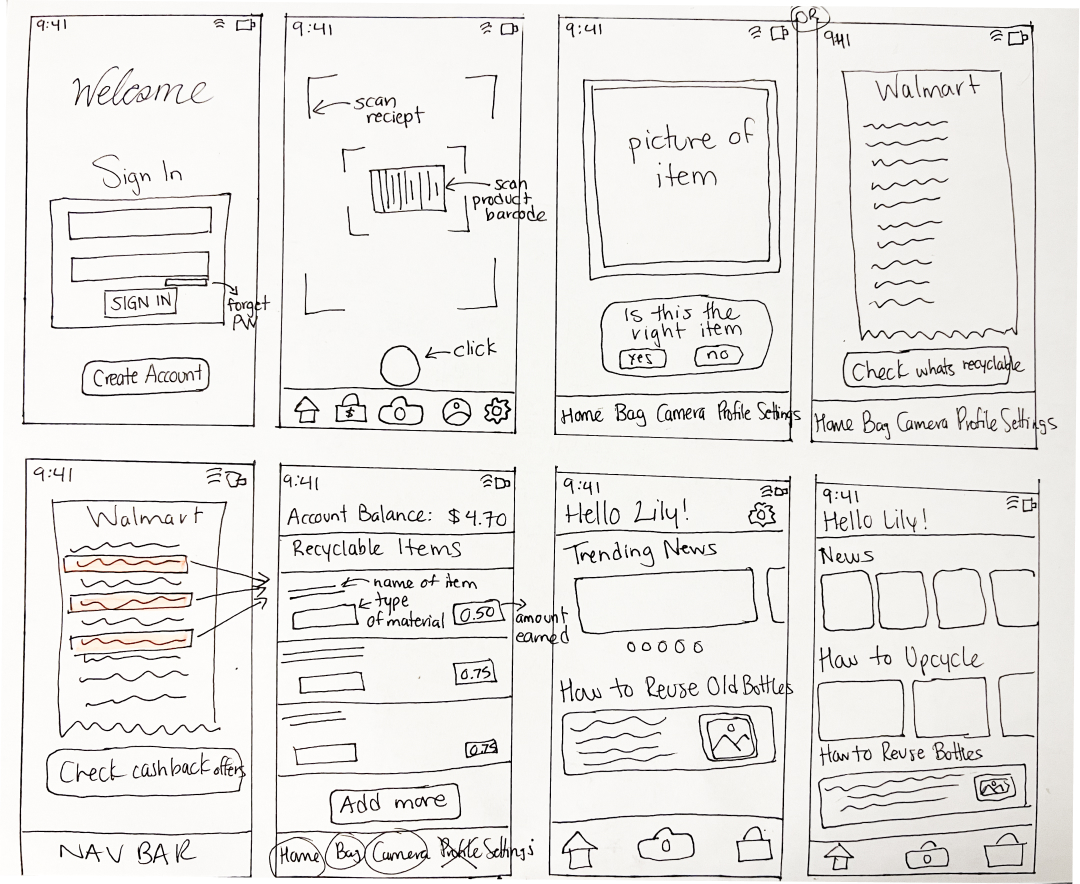 9:41
Welcome
Sign In
SIGN IN
forget
PW
Create Account
9:41
scan
reciept
scan
product
barcode
click
$
9:41
picture of
item
Is this the
right item
Yes
no
Home Bag Camera Profile Settings
OR
9:41
Walmart
Check whats recyclable
Home Bag Camera Profile Settings
9:41
Walmart
Check cashback offers
NAV BAR
9:41
Account Balance: $4.70
Recyclable Items
name of item
type
of material
0.50
amount
earned
0.75
0.75
Add more
Home Bag Camera Profile Settings
9:41
Hello Lily!
Trending News
How to Reuse Old Bottles
9:41
Hello Lily!
News
How to Upcycle
How to Reuse Bottles